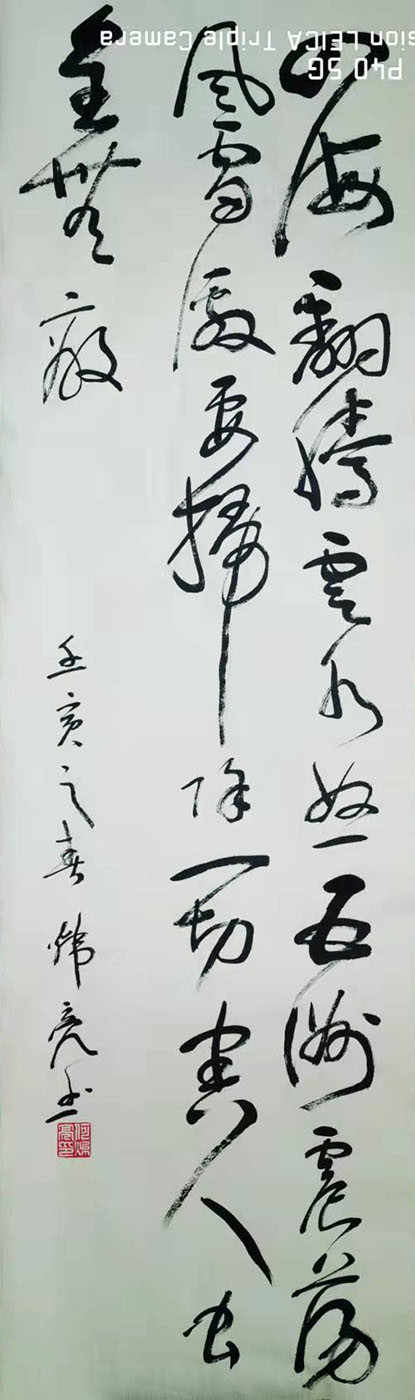 四海翻騰雲水怒五洲震蕩
風雷激要掃除一切害人虫
全無敵
壬寅之春煒亮书
P40 5G
sion LEICA Triple Camera